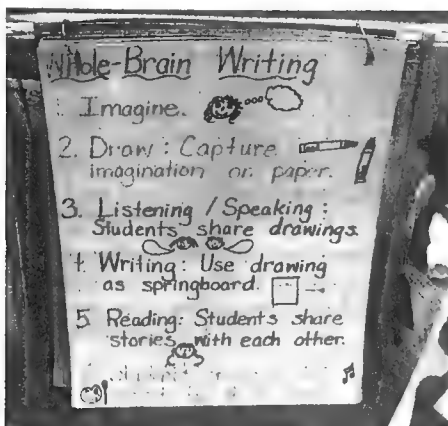 Whole-Brain Writing
1. Imagine.
2. Draw: Capture
imagination on paper.
3. Listening / Speaking:
Students share drawings.
4. Writing: Use drawing
as springboard.
5. Reading: Students share
stories with each other.